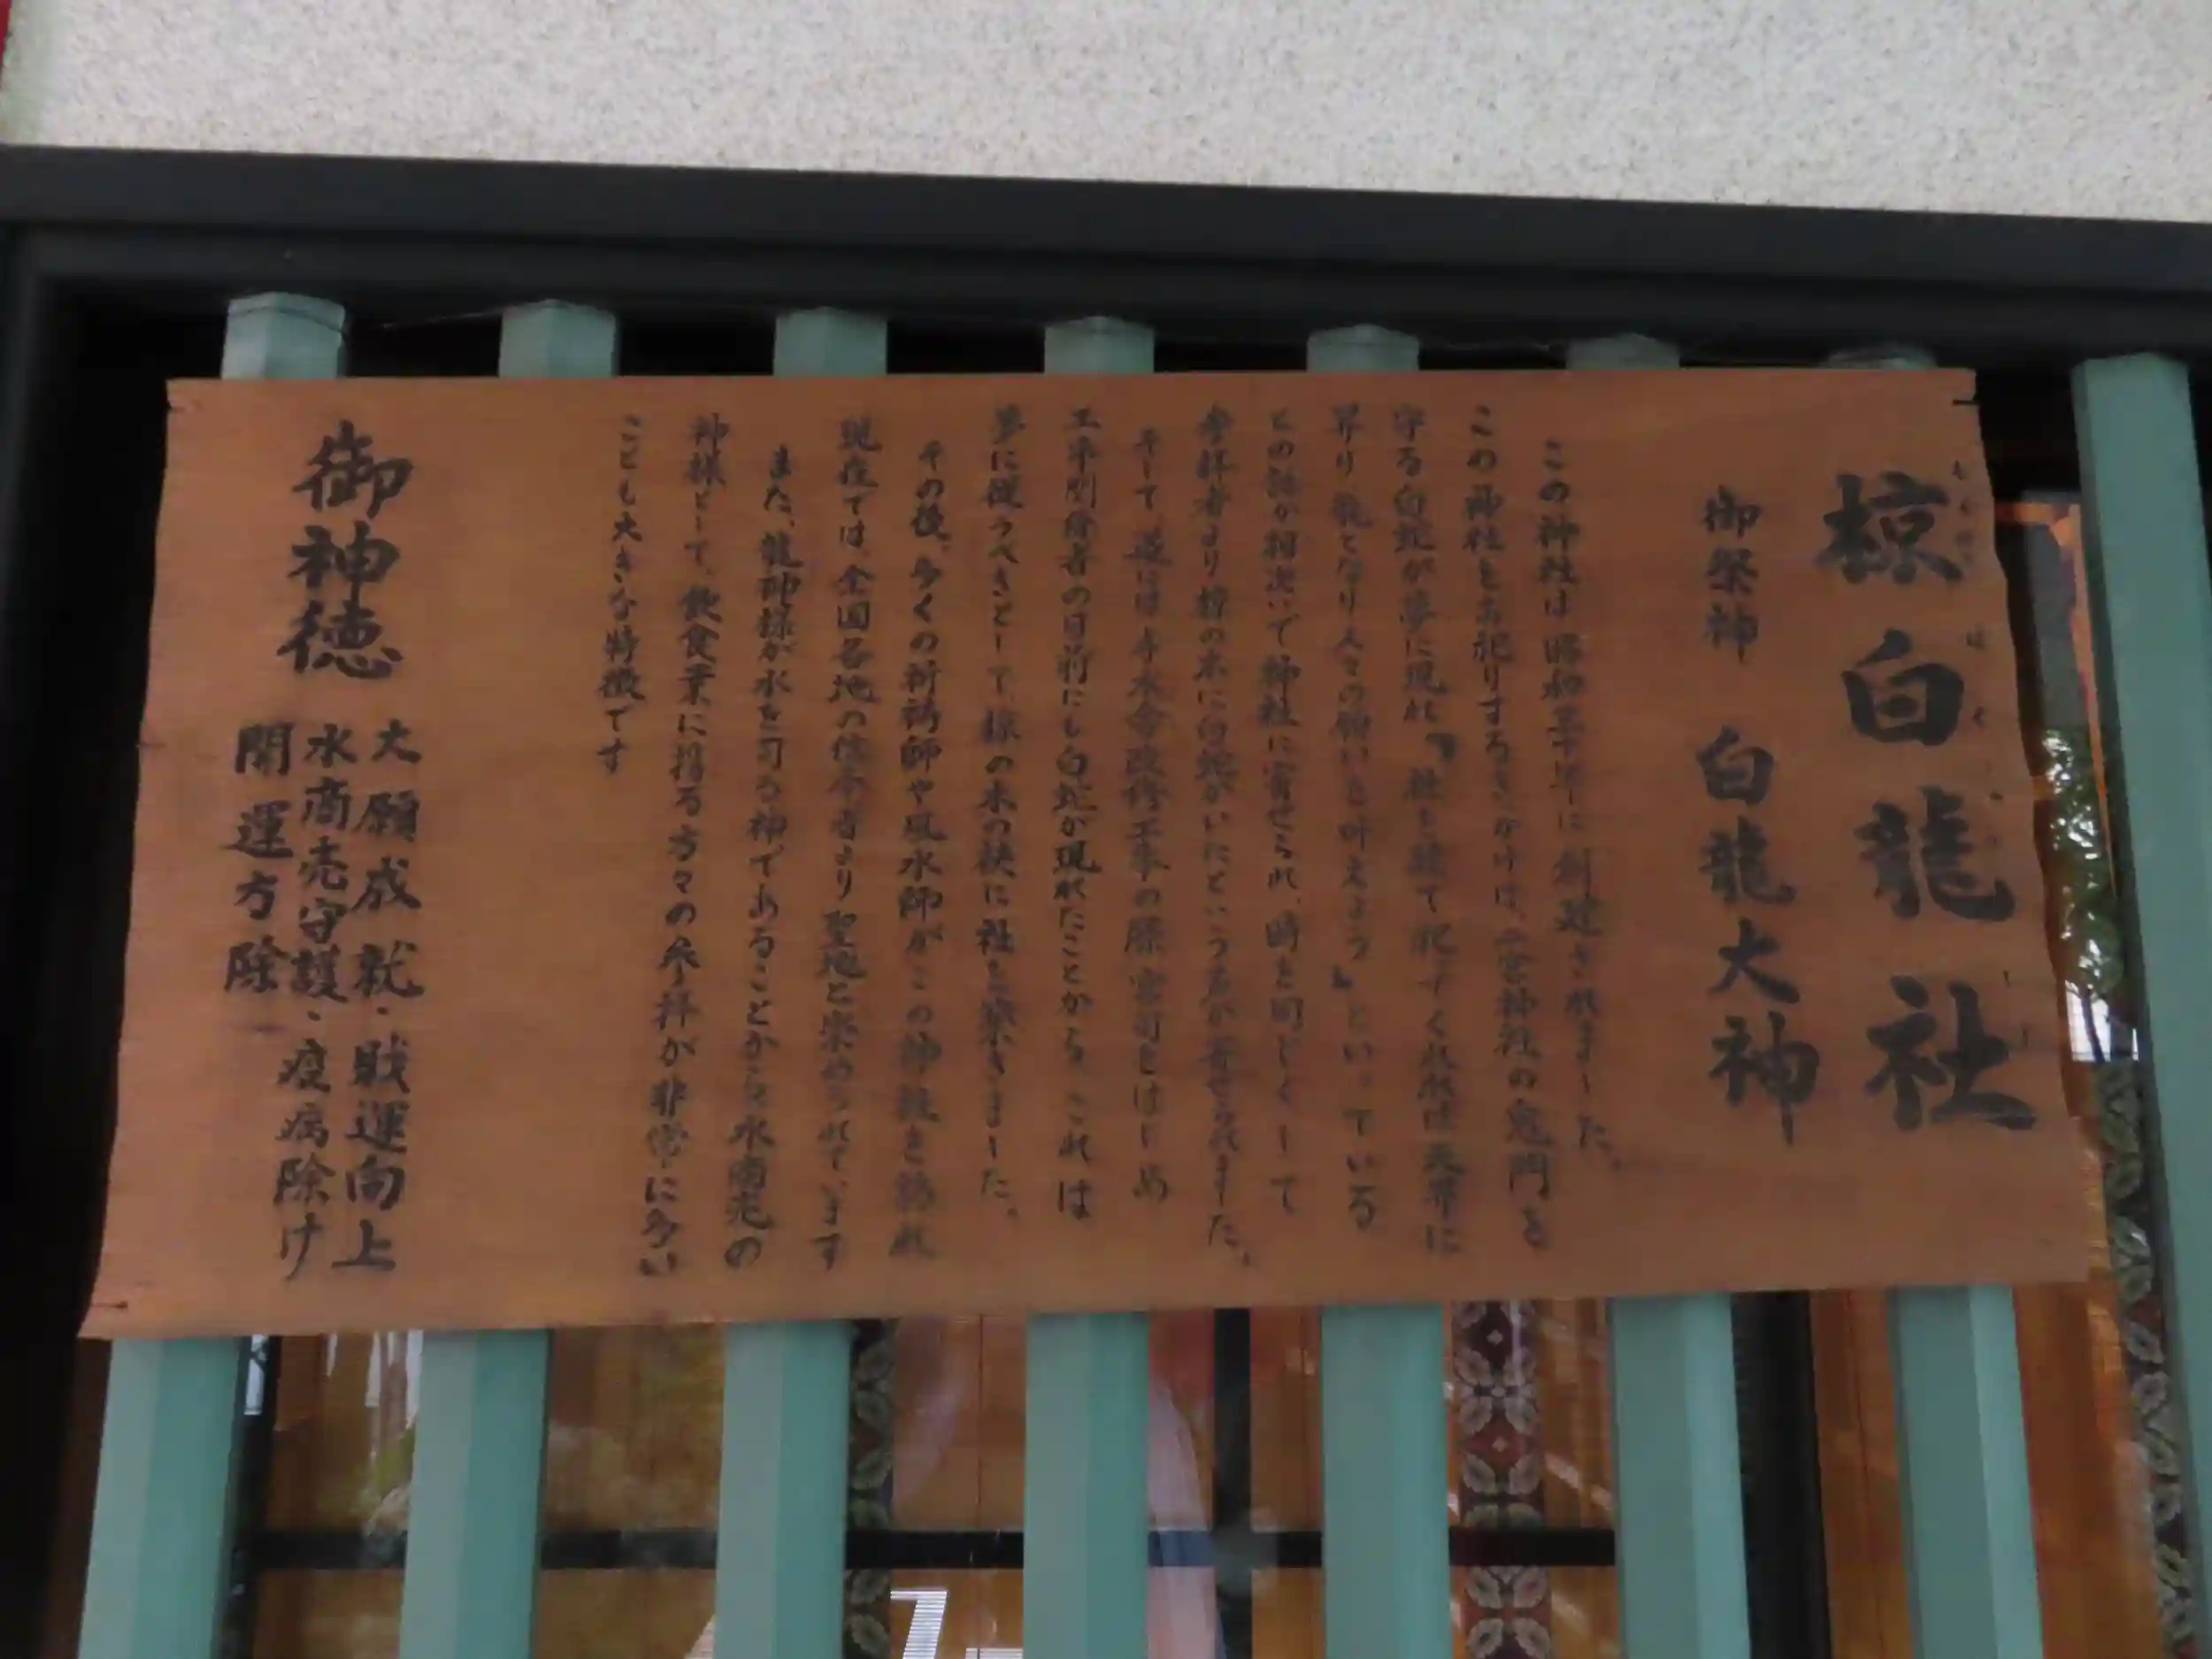 椋白龍社
むくのき はくりゅうしゃ
御祭神 白龍大神
この神社は昭和五十年に創建されました。
この神社をお祀りするきっかけは、二宮神社の鬼門を
守る白蛇が夢に現れ『社を建て祀てくれれば天界に
昇り龍となり人々の願いを叶えよう』といっている
との話が相次いで神社に寄せられ、時を同じくして
参拝者より椋の木に白蛇がいたという話が寄せられました。
そして、遂には手水舎改修工事の際、宮司をはじめ
工事関係者の目前にも白蛇が現れたことから、これは
夢に従うべきとして、椋の木の袂に社を築きました。
その後、多くの祈祷師や風水師がこの神社を訪れ
現在では、全国各地の信奉者より聖地と崇められています
また、龍神様が水を司る神であることから水商売の
神様として、飲食業に携る方々の参拝が非常に多い
ことも大きな特徴です
御神徳
大願成就・財運向上
水商売守護・疫病除け
開運方除